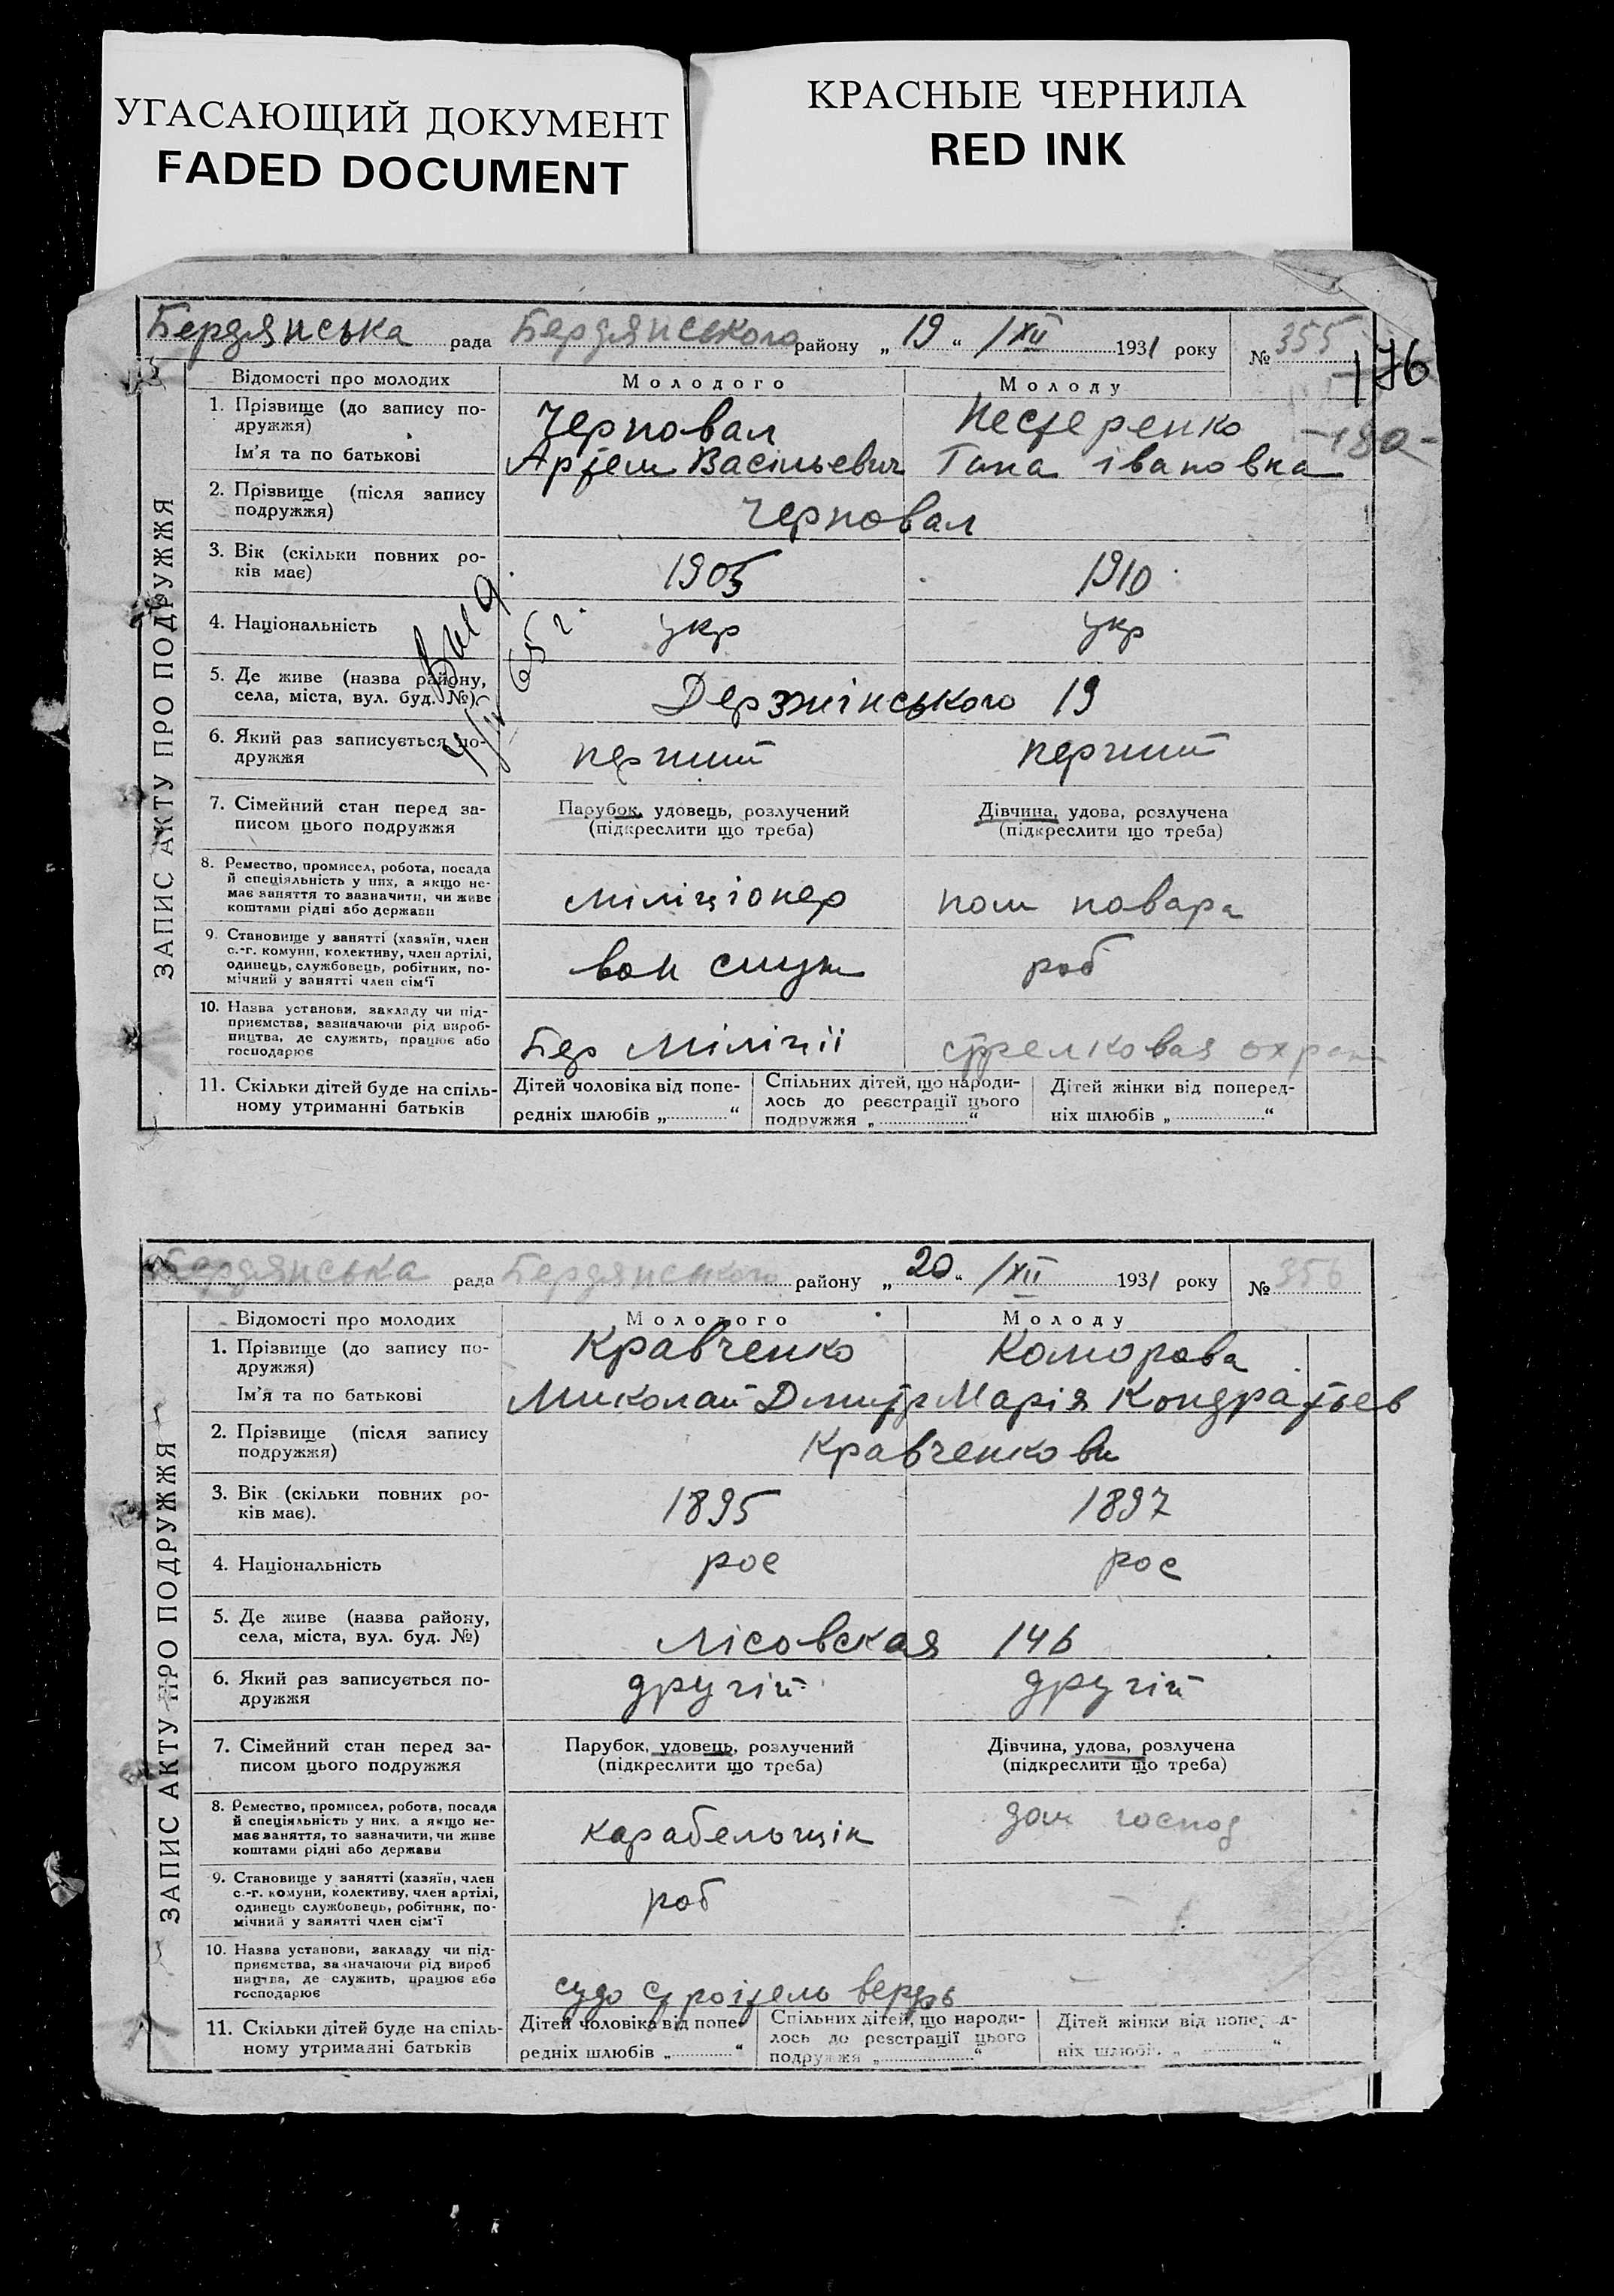 УГАСАЮЩИЙ ДОКУМЕНТ
FADED DOCUMENT
КРАСНЫЕ ЧЕРНИЛА
RED INK
Бердянська рада Бердянського району „ 19 “ /XII 1931 року № 355
176
Відомості про молодих Молодого Молоду
1. Прізвище (до запису по- Черновал Нестеренко
дружжя) -180-
Ім'я та по батькові Артем Васільевич Гана івановна
2. Прізвище (після запису
подружжя) Черновал
3. Вік (скільки повних ро-
ків має) 1905 1910
4. Національність укр укр
5. Де живе (назва району,
села, міста, вул. буд. №) Держинського 19
6. Який раз записується по-
дружжя перший перший
7. Сімейний стан перед за- Парубок, удовець, розлучений Дівчина, удова, розлучена
писом цього подружжя (підкреслити що треба) (підкреслити що треба)
8. Ремество, промисел, робота, посада
й спеціяльність у них, а якщо не-
має заняття то зазначити, чи живе міліціонер пом повара
коштами рідні або держави
9. Становище у занятті (хазяїн, член
с.-г. комуни, колективу, член артілі,
одинець, службовець, робітник, по- роб
мічний у занятті член сім'ї
10. Назва установи, закладу чи під-
приємства, зазначаючи рід вироб-
ництва, де служить, працює або Бер Міліції стрелковая охран
господарює
11. Скільки дітей буде на спіль- Дітей чоловіка від попе- Спільних дітей, що народи- Дітей жінки від поперед-
ному утриманні батьків редніх шлюбів „ “ лось до реєстрації цього ніх шлюбів „ “
подружжя „ “
ЗАПИС АКТУ ПРО ПОДРУЖЖЯ
65 г.
Бердянська рада Бердянського району „ 20 “ /XII 1931 року № 356
Відомості про молодих Молодого Молоду
1. Прізвище (до запису по- Кравченко Коморова
дружжя)
Ім'я та по батькові Миколай Дмитр Марія Кондратьев
2. Прізвище (після запису
подружжя) Кравченкови
3. Вік (скільки повних ро- 1895 1897
ків має).
4. Національність рос рос
5. Де живе (назва району,
села, міста, вул. буд. №) Лісовская 146
6. Який раз записується по- другій другій
дружжя
7. Сімейний стан перед за- Парубок, удовець, розлучений Дівчина, удова, розлучена
писом цього подружжя (підкреслити що треба) (підкреслити що треба)
8. Ремество, промисел, робота, посада
й спеціяльність у них, а якщо не- дом господ
має заняття, то зазначити, чи живе карабельщік
коштами рідні або держави
9. Становище у занятті (хазяїн, член
с.-г. комуни, колективу, член артілі,
одинець службовець, робітник, по- роб —
мічний у занятті член сім'ї
10. Назва установи, закладу чи під-
приємства, зазначаючи рід вироб
ництва, де служить, працює або —
господарює судо строітель
11. Скільки дітей буде на спіль- Дітей чоловіка від попе- Спільних дітей, що народи- Дітей жінки від поперед-
ному утриманні батьків редніх шлюбів „ “ лось до реєстрації цього ніх шлюбів „ “
подружжя „ “
ЗАПИС АКТУ ПРО ПОДРУЖЖЯ